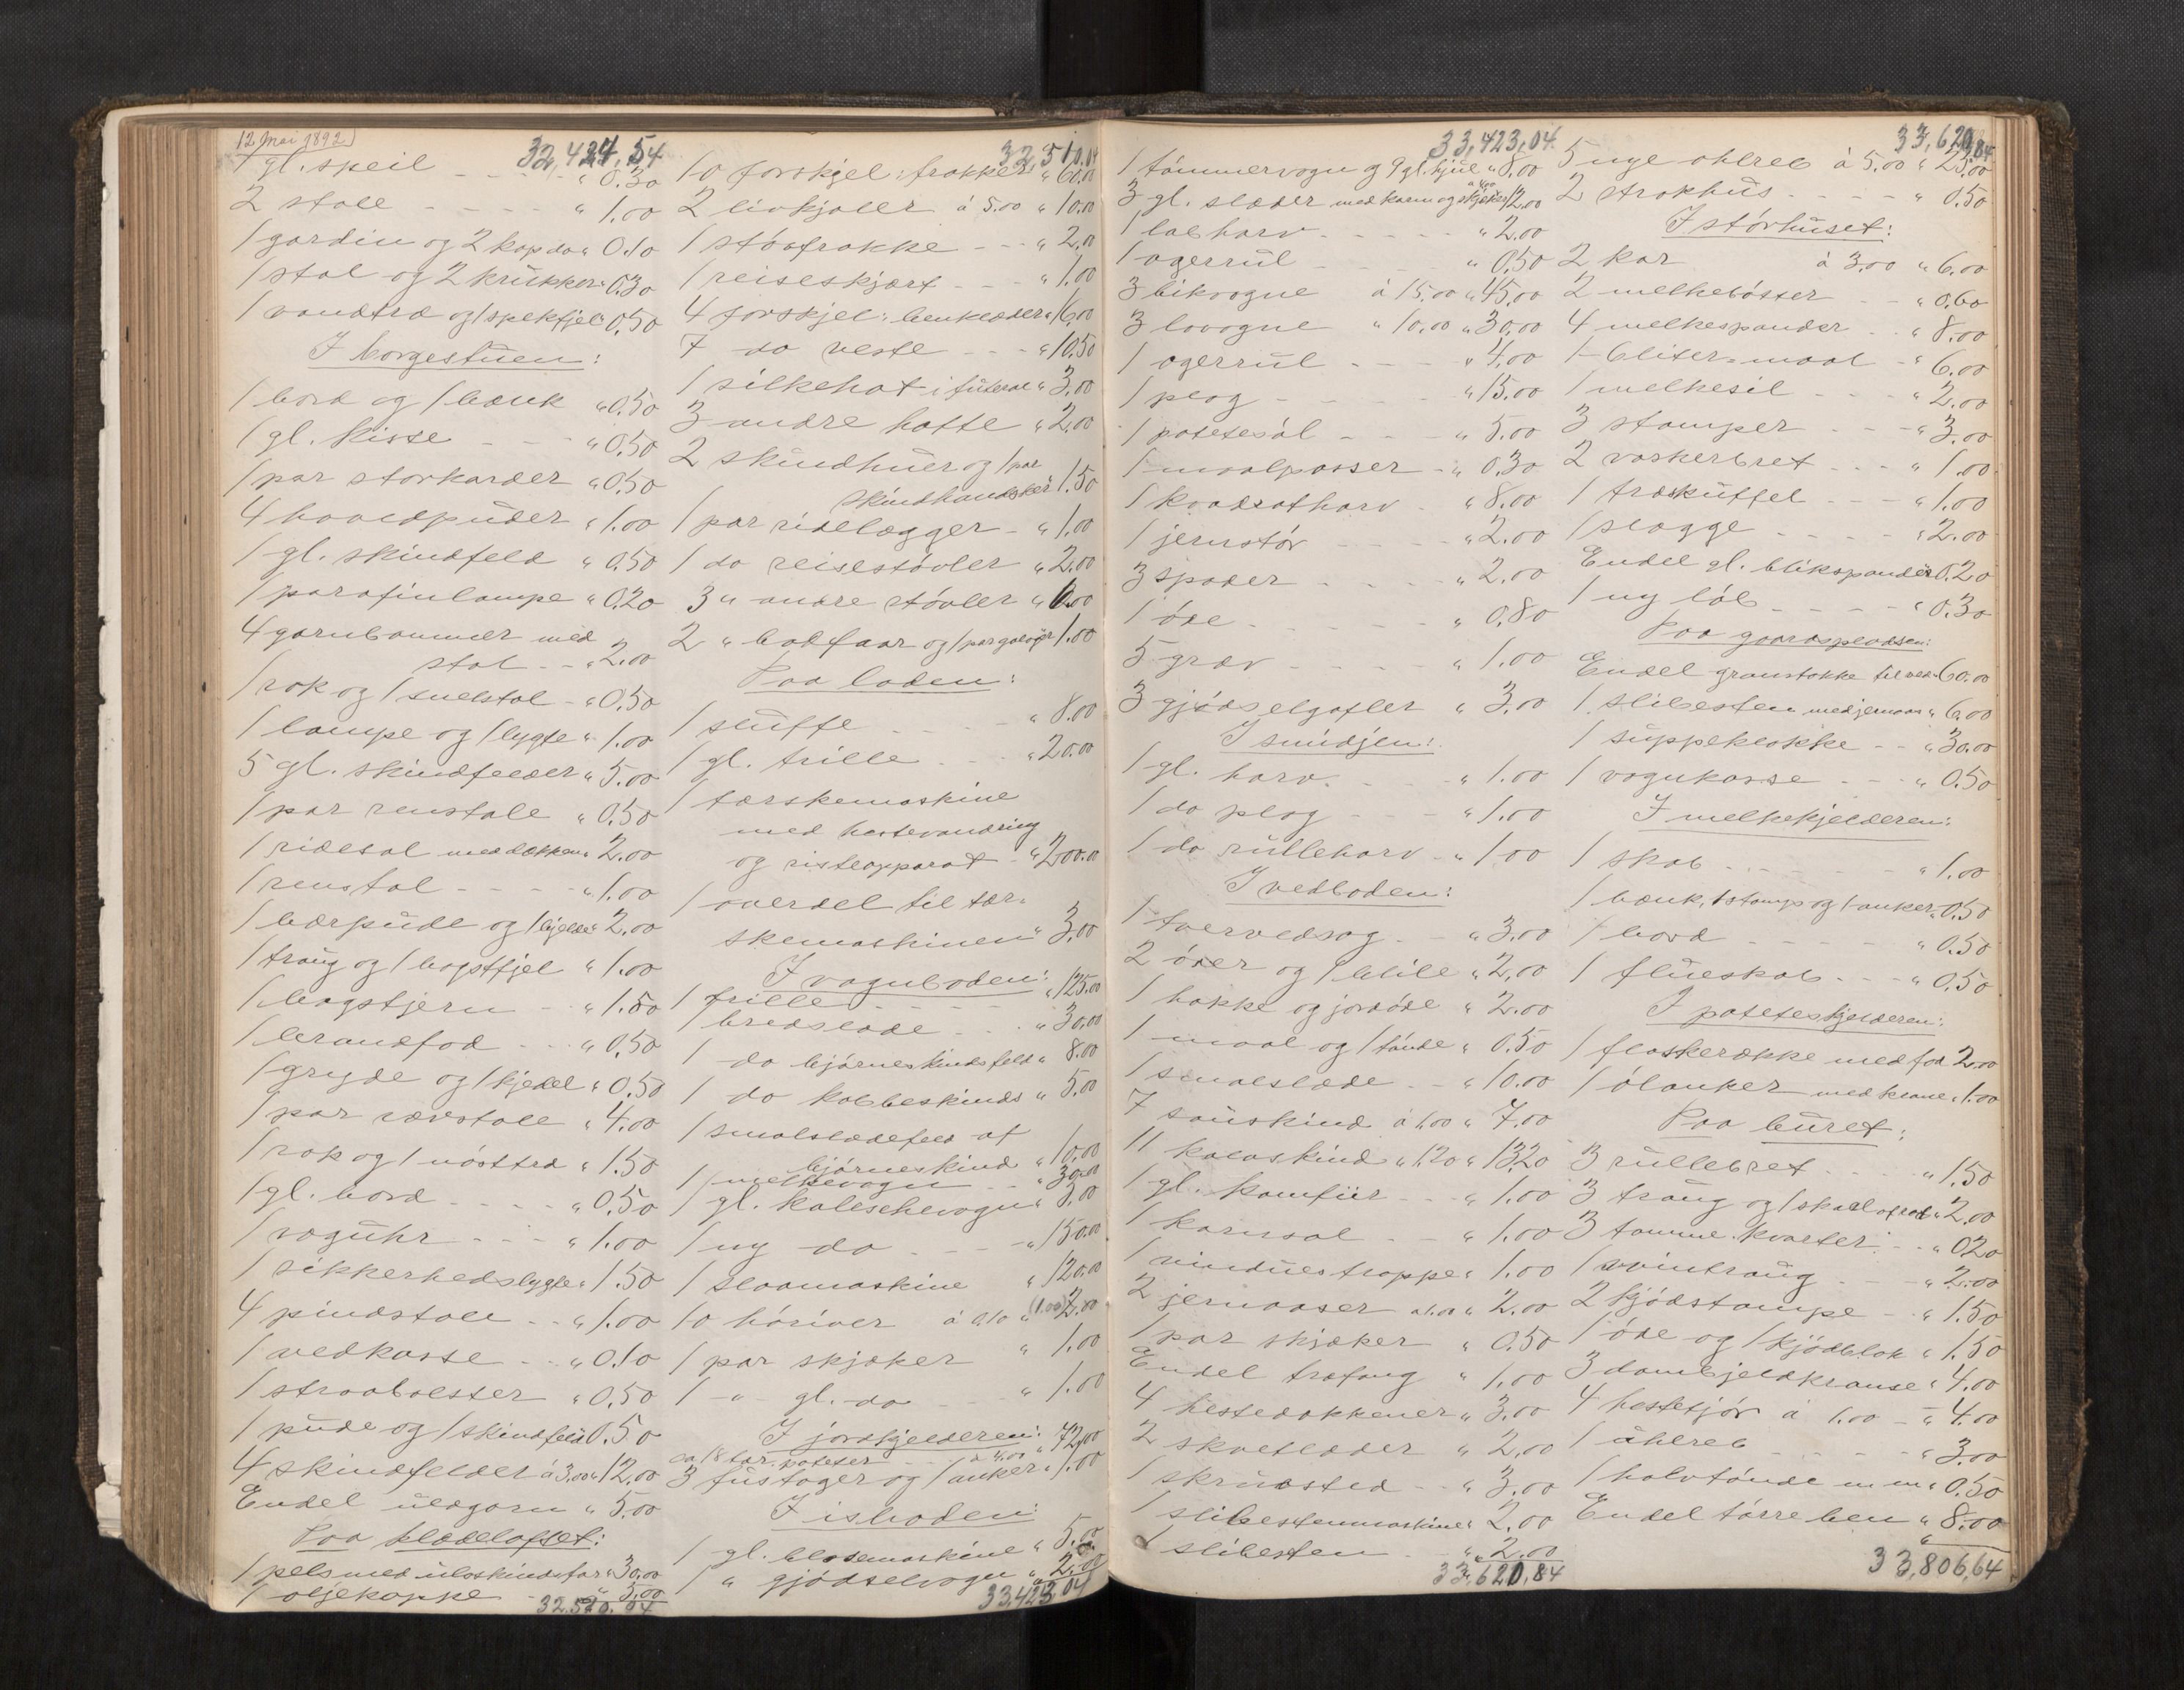 12 Mai 1892
32,424,54
1 gl. speil - - - - " 0.30
2 stole - - - - " 1.00
1 gardin og 2 kapper " 0.10
1 stol og 2 krükker " 0.30
1 vandtræ og 1 spekfjel " 0.50
I borgestüen:
1 bord og 1 bænk " 0.50
1 gl. kiste - - - " 0.50
1 par storkarder " 0.50
4 hovedpüder " 1.00
1 gl. skindfeld " 0.50
1 parafinlampe " 0.20
4 garnbommer med
stol - - " 2.00
1 rok og 1 snelstol - " 0.50
1 lampe og 1 lygte " 1.00
5 gl. skindfelder " 5.00
1 par renstole " 0.50
1 ridesal med dækken " 2.00
1 renstol - - - - " 1.00
1 bærpüde og 1 bjelde " 2.00
1 traüg og 1 bagstfjel " 1.00
1 bagstjern - - " 1.50
1 brandfod - - " 0.50
1 gryde og 1 kjedel " 0.50
1 par vævstole " 4.00
1 rok og 1 nösttræ " 1.50
1 gl. bord - - - - " 0.50
1 vogühr - - - " 1.00
1 sikkerhedslygte " 1.50
4 pindstole - - " 1.00
1 vedkasse - - " 0.10
1 straabolster " 0.50
1 püde og 1 skindfeld 0.50
4 skindfelder á 3.00 " 12.00
Endel üldgarn " 5.00
Paa klædeloftet:
1 pels med üloskindsfor " 30.00
1 oljekappe - " 5.00
32.510.04
32,510.04
10 forskjel: frakker " 60.00
2 livkjoller á 5.00 " 10.00
1 störfrakke - - - " 2.00
1 reiseskjört - - - " 1.00
4 forskjel: benklæder " 16.00
7 do veste - - - " 10.50
1 silkehat i füteral " 3.00
3 andre hatte " 2.00
2 skindhüer og 1 par
skindhandsker 1.50
1 par ridelægger - " 1.00
1 do reisestövler " 2.00
3 " andre stövler " 6.00
2 " botforer og 1 par galosjer 1.00
Paa laden:
1 slüffe - - - " 8.00
1 gl. trille - - - " 20.00
1 tærskemaskine
med hestevandring
og risteapparat " 200.00
1 overdel til tær-
skemaskinen " 3.00
I vognboden:
1 trille - - - - " 125.00
1 bredslæde - - - " 30.00
1 do björneskindsfeld " 8.00
1 do kobbeskinds " 5.00
1 smalslædefeld af
björneskind " 10.00
1 melkevogn - - " 30.00
1 gl. kaleschevogn " 5.00
1 ny do - - - " 150.00
1 slaamaskine " 120.00
10 höriver á 0.10 " (1.00) 2.00
1 par skjæker " 1.00
1 " gl. do " 1.00
I jordkjelderen:
ca 18 tdr. poteter - - á 4.00 " 72.00
3 füstager og 1 anker " 1.00
I isboden:
1 gl. blæsemaskine " 5.00
1 " gjödselvogn " 2.00
33,423,04
33,423,04
1 tömmervogn og 9 gl. hjül " 8.00
3 gl. slæder med karm og skjæker á 4.00 12.00
1 labharv - - - - - " 2.00
1 agerrül - - - " 0.50
3 likvogne á 15.00 " 45.00
3 lovogne " 10.00 " 30.00
1 agerrül - - - - " 4.00
1 plog - - - - - " 15.00
1 potetesöl - - - " 5.00
1 maalpasser - " 0.30
1 kvadratharv - " 8.00
1 jernstör - - - - " 2.00
3 spader - - - - " 2.00
1 öxe - - - - - " 0.80
5 grev - - - - " 1.00
3 gjödselgafler " 3.00
I smidjen:
1 gl. harv - - - " 1.00
1 do plog - - - " 1.00
1 do rülleharv - " 1.00
I vedboden:
1 tvervedsag - - " 3.00
2 öxer og 1 blile " 2.00
1 hakke og jordöxe " 2.00
1 maal og 1 tönde " 0.50
1 smalslæde - - " 10.00
7 saüskind á 1.00 " 7.00
11 kalvskind " 1.20 " 13.20
1 gl. komfür - - " 1.00
1 karüsol - - " 1.00
1 vindüestrappe " 1.00
2 jernaaser á 1.00 " 2.00
1 par skjæker " 0.50
Endel træfang " 1.00
4 hestedækkener " 3.00
2 skvetlæder " 2.00
1 skrüested - - " 3.00
1 slibestenmaskine " 2.00
1 slibesten - - " 2.00
33,620,84
33,620,84
5 nye ohlreb á 5.00 " 25.00
2 strokhüs - - - - " 0.50
I störhüset:
2 kar á 3.00 " 6.00
2 melkebötter - - " 0.60
4 melkespander - - " 8.00
1 6liter-maal - " 6.00
1 melkesil - - - " 2.00
3 stamper - - - " 3.00
2 vaskerbret - - - " 1.00
1 træsküffel - - - " 1.00
1 slagge - - - - " 2.00
Endel gl. blikspander 0.20
1 ny löb - - - - " 0.30
Paa gaardspladsen:
Endel granstokke til ved " 60.00
1 slibesten med jernaas " 6.00
1 süppeklokke - - " 30.00
1 vognkasse - - - " 0.50
I melkekjelderen:
1 skab - - - - - " 1.00
1 bænk, 1 stamp og 1 anker " 0.50
1 bord - - - - " 0.50
1 flüeskab - - - " 0.50
I poteteskjelderen:
1 flaskerække med fod 2.00
1 ölanker med krane " 1.00
Paa büret:
3 rüllebret - - - - " 1.50
3 traüg og 1 skaal af træ " 2.00
3 tomme kvarter - - " 0.20
1 svintraüg - - - " 2.00
2 kjödstampe - - " 1.50
1 öxe og 1 kjödblok " 1.50
3 dombjeldkranse " 4.00
4 hestetjör á 1.00 - " 4.00
1 åhlreb - - - - - " 3.00
1 halvtönde m. m. " 0.50
Endel törre ben " 8.00
33,806,64